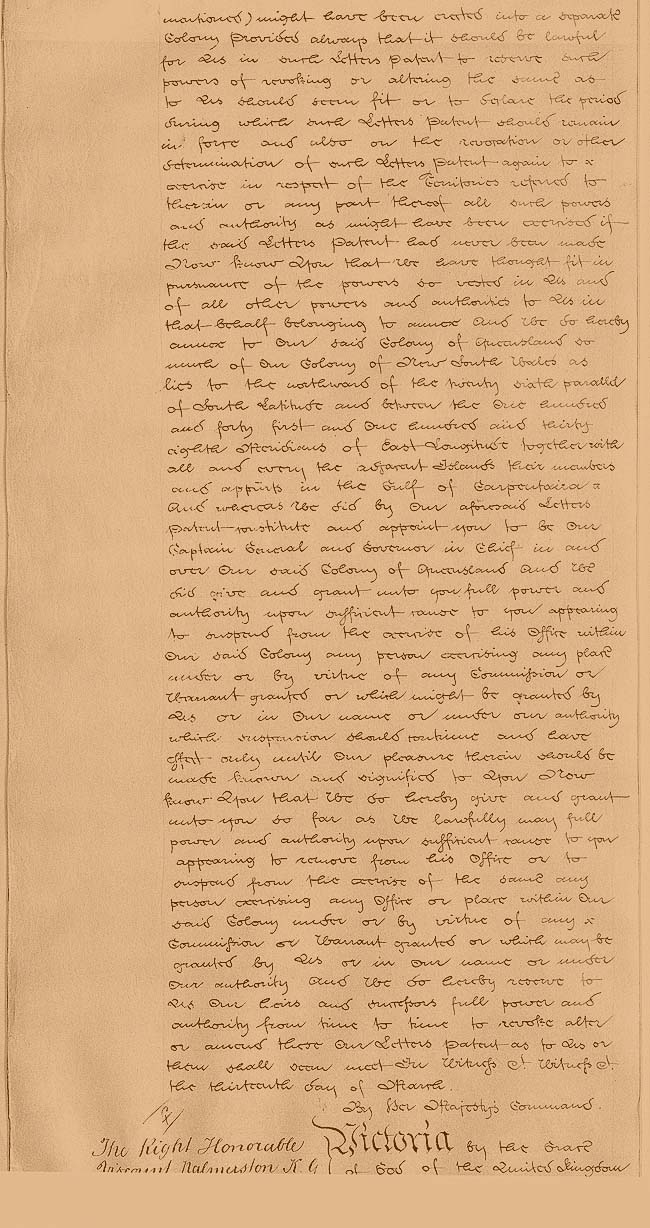 mentioned) might have been erected into a separate
Colony Provided always that it should be lawful
for Us in such Letters Patent to reserve such
powers of revoking or altering the same as
to Us should seem fit or to declare the period
during which such Letters Patent should remain
in force and also on the revocation or other
determination of such Letters Patent again to x
exercise in respect of the Territories referred to
therein or any part thereof all such powers
and authority as might have been exercised if
the said Letters Patent had never been made
Now know You that We have thought fit in
pursuance of the powers so vested in Us and
of all other powers and authorities to Us in
that behalf belonging to annex And We do hereby
annex to Our said Colony of Queensland so
much of Our Colony of New South Wales as
lies to the northward of the twenty sixth parallel
of South Latitude and between the One hundred
and forty first and One hundred and thirty
eighth Meridians of East Longitude together with
all and every the adjacent Islands their members
and appurts in the Gulf of Carpentaria x
And whereas We did by Our aforesaid Letters
Patent constitute and appoint you to be Our
Captain General and Governor in Chief in and
over Our said Colony of Queensland And We
did give and grant unto you full power and
authority upon sufficient cause to you appearing
to suspend from the exercise of his Office within
Our said Colony any person exercising any place
under or by virtue of any Commission or
Warrant granted or which might be granted by
Us or in Our name or under our authority
which suspension should continue and have
effect only until Our pleasure therein should be
made known and signified to You Now
know You that We do hereby give and grant
unto you so far as We lawfully may full
power and authority upon sufficient cause to you
appearing to remove from his Office or to
suspend from the exercise of the same any
person exercising any Office or place within Our
said Colony under or by virtue of any x
Commission or Warrant granted or which may be
granted by Us or in Our name or under
Our authority And We do hereby reserve to
Us Our heirs and successors full power and
authority from time to time to revoke alter
or amend these Our Letters Patent as to Us or
them shall seem meet In Witness &c. Witness &c.
the thirteenth day of March.
By Her Majesty's Command.
The Right Honorable
Viscount Palmerston K G
Victoria by the Grace
of God of the United Kingdom